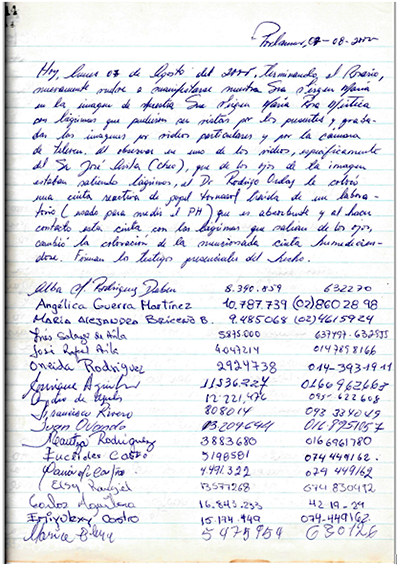 Porlamar, 07-08-2000
Hoy, lunes 07 de Agosto del 2000, terminando el Rosario,
nuevamente vuelve a manifestarse nuestra Sra Virgen María
en la imagen de nuestra Sra Virgen María Rosa Mística
con lágrimas que pudieron ser vistas por los presentes y graba-
das las imagenes por videos particulares y por la cámara
de Televen. Al observar en uno de los videos, específicamente
del Sr. José Acosta (Cheo), que de los ojos de la imagen
estaban saliendo lágrimas, el Dr Rodrigo Ordaz le colocó
una cinta reactiva de papel tornasol traida de un labora-
torio (usado para medir el PH) que es absorbente y al hacer
contacto esta cinta con las lágrimas que salieron de los ojos,
cambió la coloración de la mencionada cinta humedecien-
dose. Firman los testigos presenciales del hecho.
Alba Rodríguez 8.390.859 632270
Angélica Guerra Martínez 10.787.739 (02) 860 28 98
María Alejandra Briceño B. 9.485068 (02) 9615924
Inés de Avila 5875.000 637497-632955
José Rafael Avila 4047214 0147898166
Oneida Rodríguez 2924738 014-393-1911
Enrique 11536227 0166962663
Pedro de 12.221,476 095-622608
Francisco Rivero 808014 093 334049
Juan Ovando
Maritza Rodríguez 3883680 0166961780
Eucarides Castro 5198581 074449162.
Castro 4491322 074 449162
Elsy Rangel 13577268 074 830492
Carlos 16.843.253 42-19-24
Castro 15.174.949 074-449162
Marisa 5475954 630126